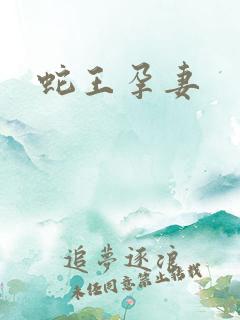 蛇王孕妻
追夢逐浪
未经同意禁止转载